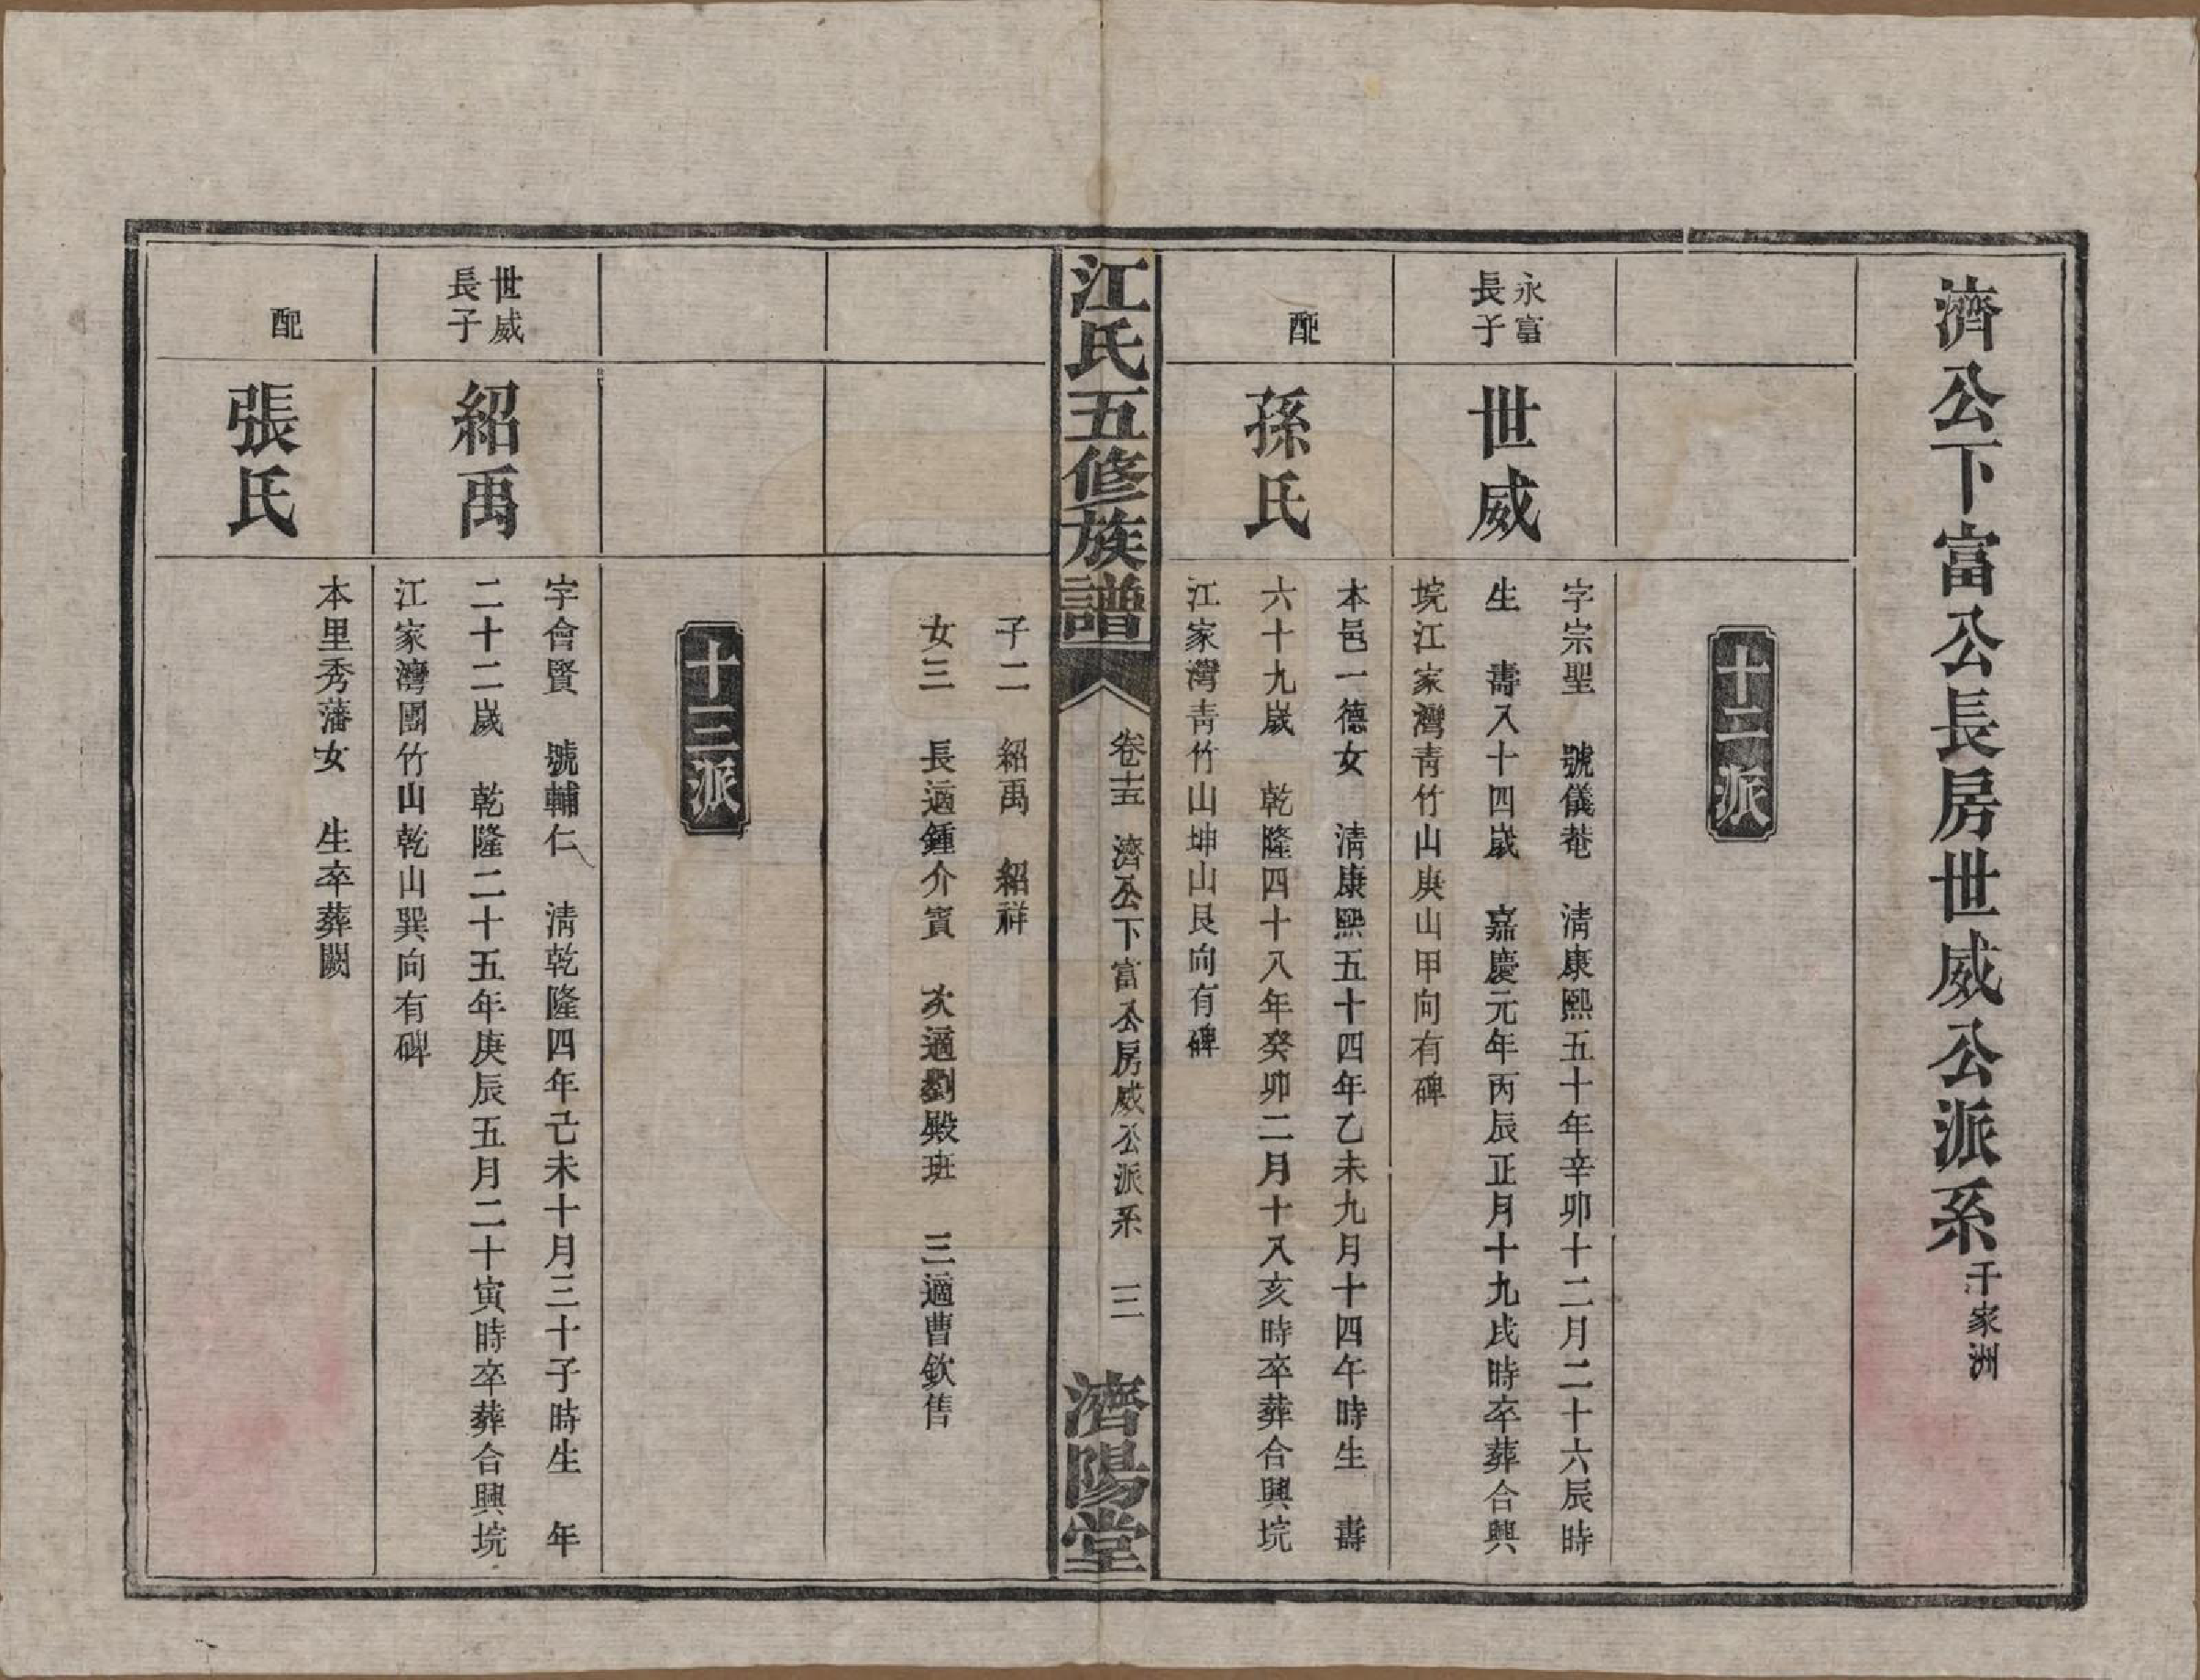 濟公下富公長房世威公派系 千家洲
十二派
永富
長子
世威
字宗聖 號儀菴 清康熙五十年辛卯十二月二十六辰時
生 壽八十四歲 嘉慶元年丙辰正月十九戌時卒葬合興
垸江家灣青竹山庚山甲向有碑
配
孫氏
本邑一德女 清康熙五十四年乙未九月十四午時生 壽
六十九歲 乾隆四十八年癸卯二月十八亥時卒葬合興垸
江家灣青竹山坤山艮向有碑
江氏五修族譜
卷十五 濟公下富公房威公派系 三
濟陽堂
子二 紹禹 紹祥
女三 長適鍾介賓 次適劉殿班 三適曹欽售
十三派
世威
長子
紹禹
字會賢 號輔仁 清乾隆四年己未十月三十子時生 年
二十二歲 乾隆二十五年庚辰五月二十寅時卒葬合興垸
江家灣團竹山乾山巽向有碑
配
張氏
本里秀藩女 生卒葬闕